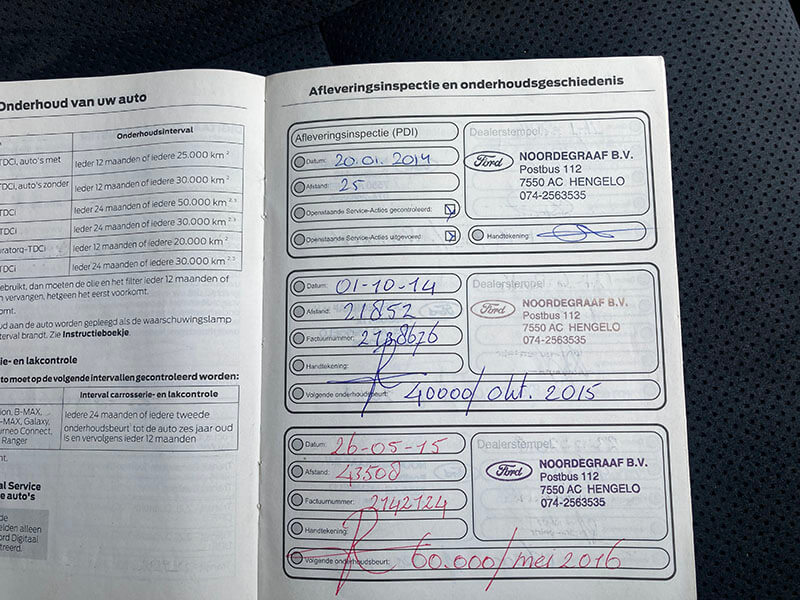 Onderhoud van uw auto
Onderhoudsinterval
TDCi, auto's met
Ieder 12 maanden of iedere 25.000 km ²
TDCi, auto's zonder
Ieder 12 maanden of iedere 30.000 km ²
TDCi
Ieder 24 maanden of iedere 50.000 km ²·³
TDCi
Ieder 24 maanden of iedere 30.000 km ²·³
uratorq-TDCi
Ieder 12 maanden of iedere 20.000 km ²
TDCi
Ieder 24 maanden of iedere 30.000 km ²·³
ebruikt, dan moeten de olie en het filter ieder 12 maanden of
n vervangen, hetgeen het eerst voorkomt.
omt.
ud aan de auto worden gepleegd als de waarschuwingslamp
terval brandt. Zie Instructieboekje.
ie- en lakcontrole
to moet op de volgende intervallen gecontroleerd worden:
Interval carrosserie- en lakcontrole
ion, B-MAX,
-MAX, Galaxy,
urneo Connect,
Ranger
Iedere 24 maanden of iedere tweede
onderhoudsbeurt tot de auto zes jaar oud
is en vervolgens ieder 12 maanden
nt.
al Service
e auto's
de
elden alleen
ord Digitaal
treerd.
Afleveringsinspectie en onderhoudsgeschiedenis
Afleveringsinspectie (PDI)
Datum: 20.01.2014
Afstand: 25
Openstaande Service-Acties gecontroleerd:
Openstaande Service-Acties uitgevoerd:
Dealerstempel:
Ford
NOORDEGRAAF B.V.
Postbus 112
7550 AC HENGELO
074-2563535
Handtekening:
Datum: 01-10-14
Afstand: 21852
Factuurnummer:
Handtekening:
Volgende onderhoudsbeurt: 40000/okt. 2015
Dealerstempel:
Ford
NOORDEGRAAF B.V.
Postbus 112
7550 AC HENGELO
074-2563535
Datum: 26-05-15
Afstand: 43508
Factuurnummer: 2142124
Handtekening:
Volgende onderhoudsbeurt: 60.000/mei 2016
Dealerstempel:
Ford
NOORDEGRAAF B.V.
Postbus 112
7550 AC HENGELO
074-2563535